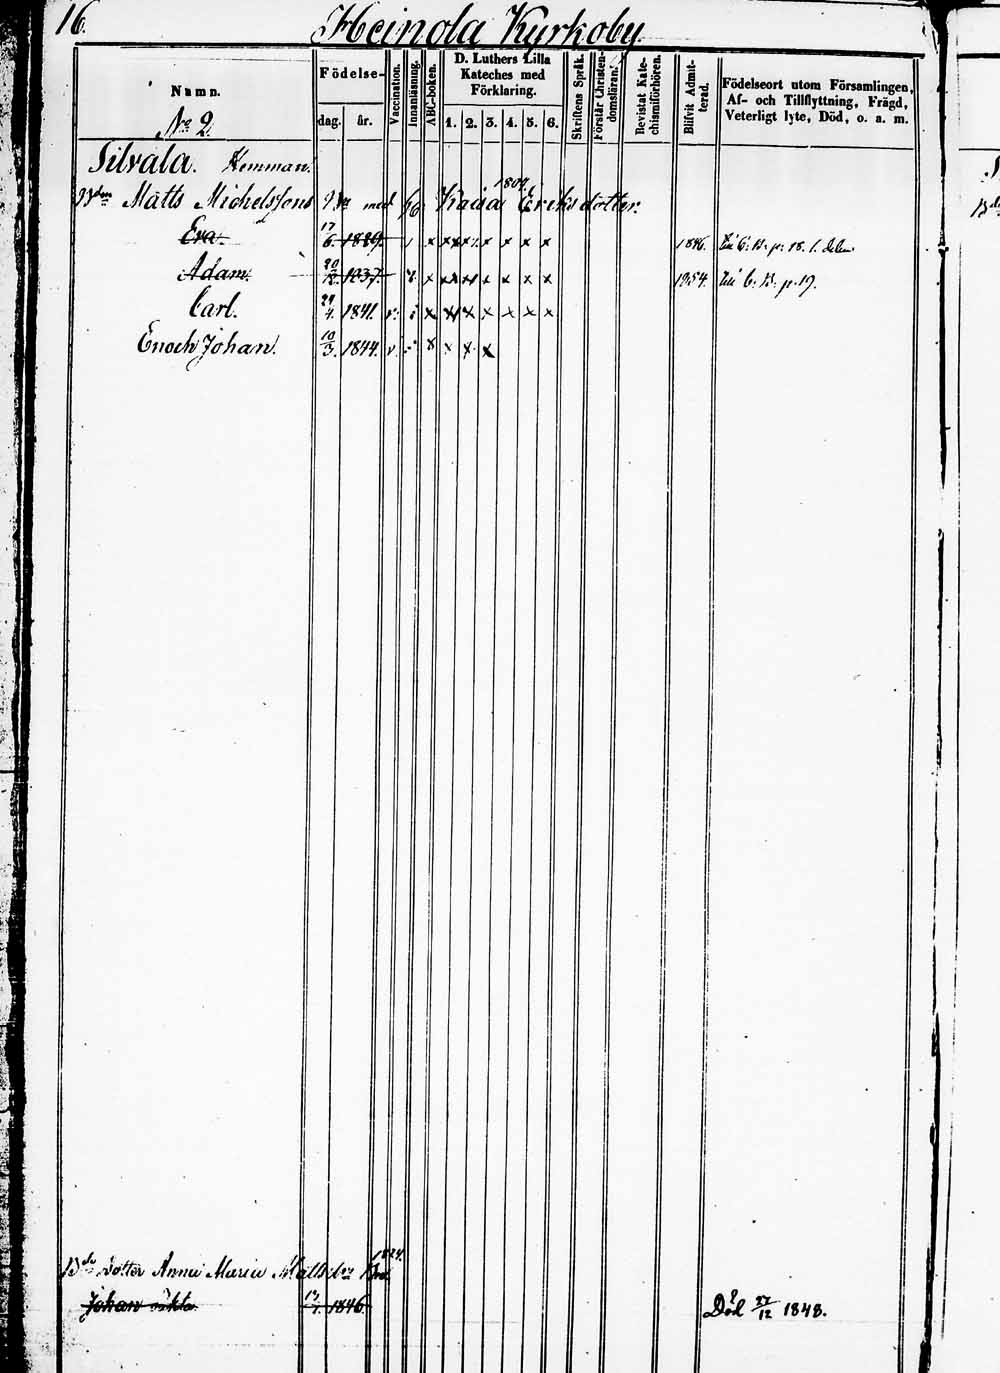 16.
Heinola Kyrkoby
Namn.
No 2.
Födelse-
dag. år.
Vaccination.
Innanläsning.
ABC-boken.
D. Luthers Lilla
Kateches med
Förklaring.
1. 2. 3. 4. 5. 6.
Skriftens Språk.
Förstår Christen-
domsläran.
Bevistat Kate-
chismiförhören.
Blifvit Admit-
terad.
Födelseort utom Församlingen,
Af- och Tillflyttning, Frägd,
Veterligt lyte, Död, o. a. m.
Silvala. Hemman.
Matts Michelssons med Kaisa Eriksdotter. 1809.
Eva. 17/6. 1829. x x x x x x x 1846. Till C: B: p: 18. 1. delen
Adam. 20/12. 1837. x x x x x x x 1854. Till C: B: p. 19.
Carl. 24/4. 1841. v. i x x x x x x x
Enoch Johan. 10/3. 1844. v. i x x x x
Dotter Anna Maria Mattsdr 1824.
Johan oäkta 1846 Död 27/12 1848.